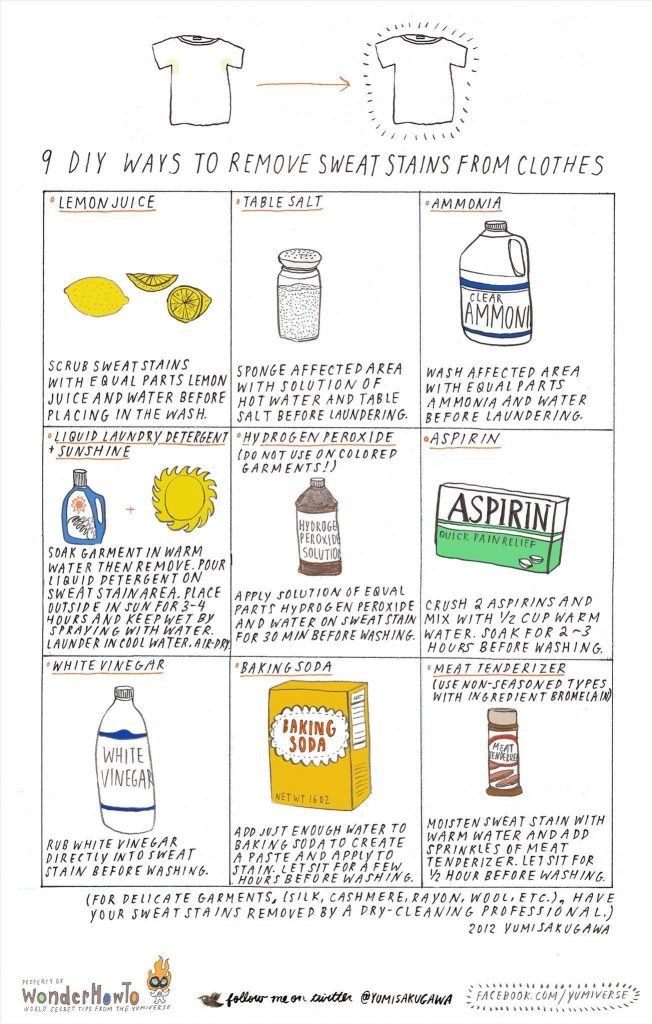 9 DIY WAYS TO REMOVE SWEAT STAINS FROM CLOTHES
LEMON JUICE
SCRUB SWEAT STAINS
WITH EQUAL PARTS LEMON
JUICE AND WATER BEFORE
PLACING IN THE WASH.
TABLE SALT
SPONGE AFFECTED AREA
WITH SOLUTION OF
HOT WATER AND TABLE
SALT BEFORE LAUNDERING.
AMMONIA
CLEAR
AMMONI
WASH AFFECTED AREA
WITH EQUAL PARTS
AMMONIA AND WATER
BEFORE LAUNDERING.
LIQUID LAUNDRY DETERGENT
+ SUNSHINE
+
SOAK GARMENT IN WARM
WATER THEN REMOVE. POUR
LIQUID DETERGENT ON
SWEAT STAIN AREA. PLACE
OUTSIDE IN SUN FOR 3-4
HOURS AND KEEP WET BY
SPRAYING WITH WATER.
LAUNDER IN COOL WATER. AIR-DRY.
HYDROGEN PEROXIDE
(DO NOT USE ON COLORED
GARMENTS!)
HYDROGE
PEROXIDE
SOLUTION
APPLY SOLUTION OF EQUAL
PARTS HYDROGEN PEROXIDE
AND WATER ON SWEAT STAIN
FOR 30 MIN BEFORE WASHING.
ASPIRIN
ASPIRIN
QUICK PAIN RELIEF
CRUSH 2 ASPIRINS AND
MIX WITH 1/2 CUP WARM
WATER. SOAK FOR 2-3
HOURS BEFORE WASHING.
WHITE VINEGAR
WHITE
VINEGAR
RUB WHITE VINEGAR
DIRECTLY INTO SWEAT
STAIN BEFORE WASHING.
BAKING SODA
BAKING
SODA
NET WT 16 OZ
ADD JUST ENOUGH WATER TO
BAKING SODA TO CREATE
A PASTE AND APPLY TO
STAIN. LET SIT FOR A FEW
HOURS BEFORE WASHING.
MEAT TENDERIZER
(USE NON-SEASONED TYPES
WITH INGREDIENT BROMELAIN)
MEAT
MOISTEN SWEAT STAIN WITH
WARM WATER AND ADD
SPRINKLES OF MEAT
TENDERIZER. LET SIT FOR
1/2 HOUR BEFORE WASHING.
(FOR DELICATE GARMENTS, (SILK, CASHMERE, RAYON, WOOL, ETC.), HAVE
YOUR SWEAT STAINS REMOVED BY A DRY-CLEANING PROFESSIONAL.)
2012 YUMI SAKUGAWA
PROPERTY OF
WonderHowTo
WORLD SECRET TIPS FROM THE YUMIVERSE
follow me on twitter @YUMISAKUGAWA
FACEBOOK.COM/YUMIVERSE